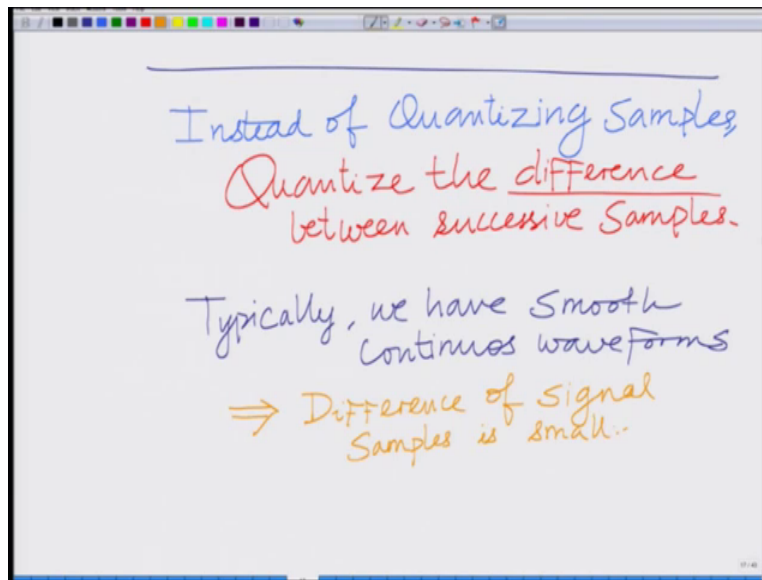 Instead of Quantizing Samples,
Quantize the difference
between successive Samples.
Typically, we have smooth
continuos waveforms
⇒ Difference of signal
Samples is small..